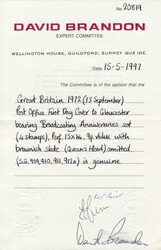 No. 20819
DAVID BRANDON
EXPERT COMMITTEE
WELLINGTON HOUSE, GUILDFORD, SURREY GU3 1DE.
Date: 15-5-1997
The Committee is of the opinion that the
Great Britain 1972 (13 September)
Post Office First Day Cover to Gloucester
bearing Broadcasting Anniversaries set
(4 stamps), Prof. 15 x 14. 9p value with
brownish slate (Queen's Head) omitted
(SG. 909, 910, 911, 912a) is genuine
David Brandon